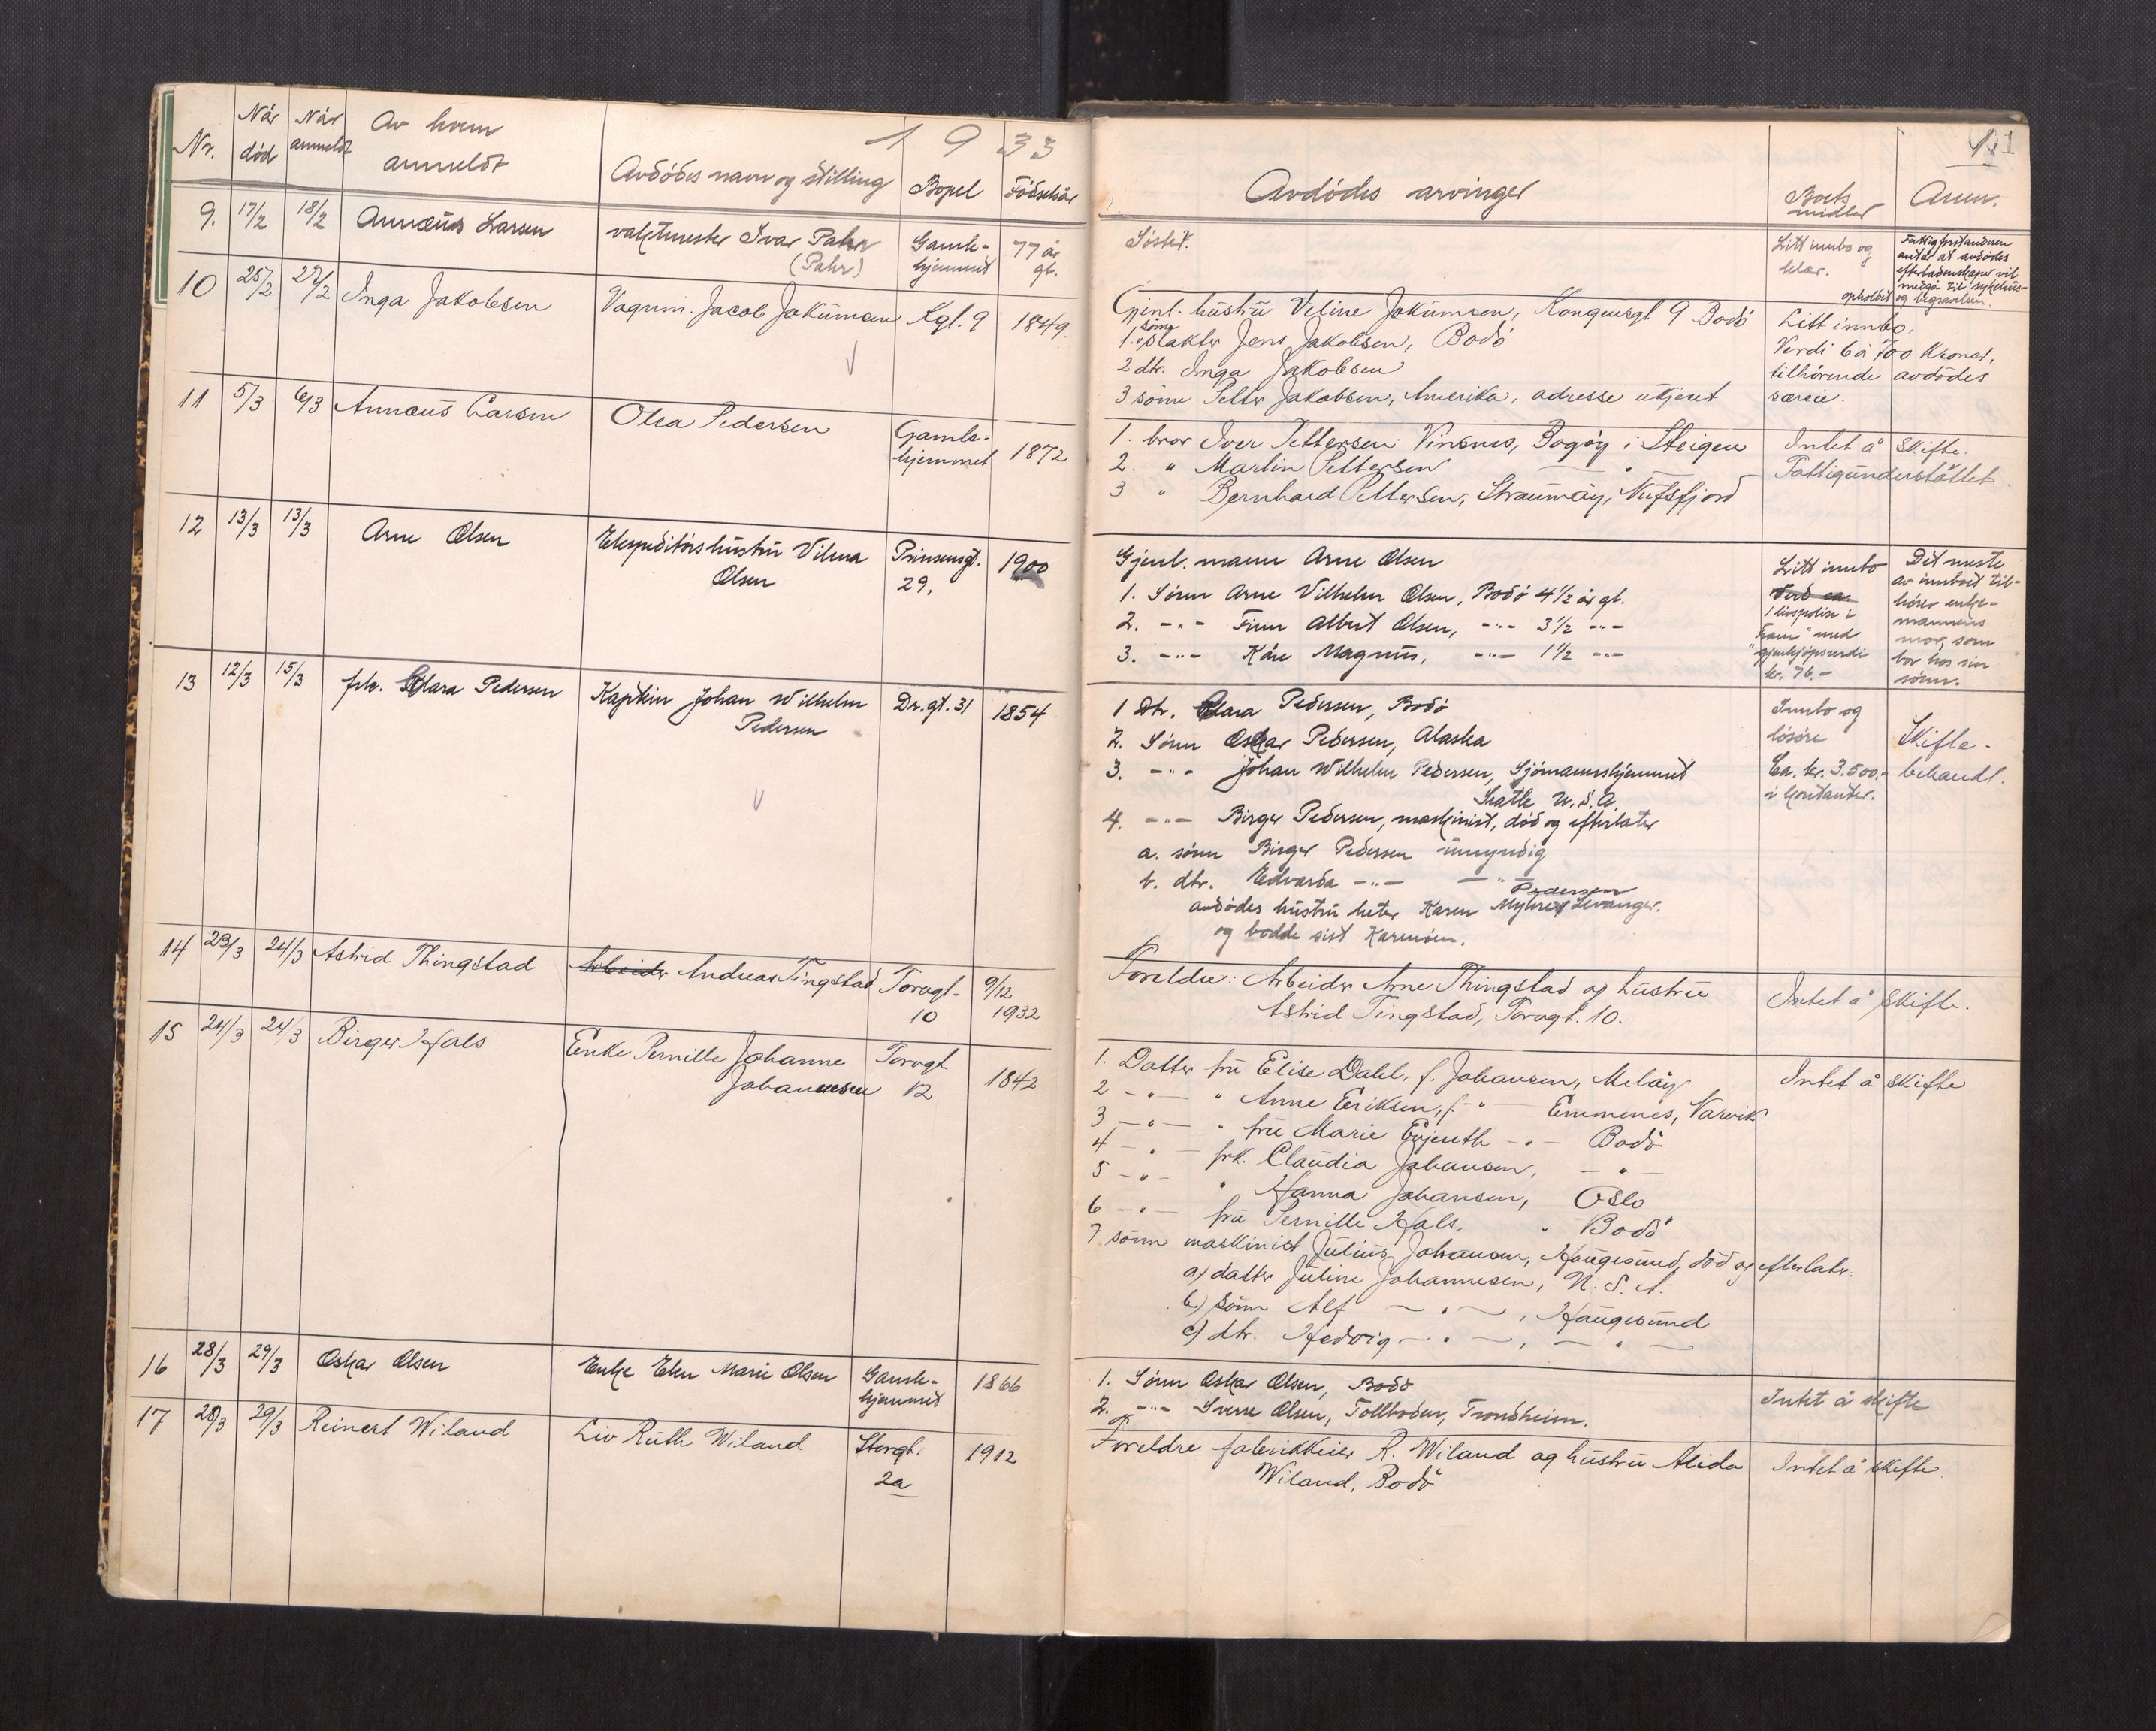 1933
Nr. Når død Når anmeldt Av hvem anmeldt Avdødes navn og stilling Bopel Fødselsår
9. 17/2 18/2 Annæus Larsen vaktmester Ivar Pahr Gamle- 77 år
(Pahr) hjemmet gl.
10 25/2 27/2 Inga Jakobsen Vognm. Jacob Jakumsen Kgl. 9 1849.
11 5/3 6/3 Annæus Larsen Olea Pedersen Gamle-
hjemmet 1872
12 13/3 13/3 Arne Olsen Ekspeditørs hustru Vilma Prinsensgt. 1900
Olsen 29,
13 12/3 15/3 frk. Clara Pedersen Kaptein Johan Wilhelm Dr.gt. 31 1854
Pedersen
14 23/3 24/3 Astrid Thingstad Arbeider Andreas Tingstad Torvgt. 9/12
10 1932
15 24/3 24/3 Birger Hals Enke Pernille Johanne Torvgt
Johannesen 12 1842
16 28/3 29/3 Oskar Olsen Enke Elen Marie Olsen Gamle- 1866
hjemmet
17 28/3 29/3 Reinert Wiland Liv Ruth Wiland Storgt. 1912
2a
Avdødes arvinger Boets midler Anm.
Søster. Litt innbo og
klær.
Fattigforstanderen
antar at avdødes
efterladenskaper vil
medgå til sykehus-
opholdet og begravelsen.
Gjenl. hustru Veline Jakumsen, Kongensgt 9 Bodø
1. sønn slakter Jens Jakobsen, Bodø
2 dtr. Inga Jakobsen
3 sønn Petter Jakobsen, Amerika, adresse ukjent
Litt innbo.
Verdi 6 à 700 kroner,
tilhørende avdødes
særeie.
1. bror Iver Pettersen Vinsnes, Bogøy i Steigen
2. " Martin Pettersen "
3 " Bernhard Pettersen, Straumøy, Nufsfjord
Intet å skifte.
Fattigunderstøttet.
Gjenl. mann Arne Olsen
1. Sønn Arne Vilhelm Olsen, Bodø 4½ år gl.
2. -"- Finn Albert Olsen, -"- 3½ -"-
3. -"- Kåre Magnus, -"- 1½ -"-
Litt innbo
Verd ca.
1 livspolise i
"Fram" med
gjenkjøpsverdi
kr. 76.-
Det meste
av innboet til-
hører enke-
mannens
mor, som
bor hos sin
sønn.
1 Dtr. Clara Pedersen, Bodø
2. Sønn Oskar Pedersen, Alaska
3. -"- Johan Wilhelm Pedersen, Sjømannshjemmet
Seatle U.S.A.
4. -"- Birger Pedersen, maskinist, død og efterlater
a. sønn Birger Pedersen umyndig
b. dtr. Edvarda -"- -"-
Pedersen
avdødes hustru heter Karen Myhre, Levanger.
og bodde sist Karmøen.
Innbo og
løsøre
Ca. kr. 3.500.-
i kontanter.
Skifte-
behandl.
Foreldre: Arbeider Arne Thingstad og hustru
Astrid Tingstad, Torvgt. 10.
Intet å skifte.
1. Datter fru Elise Dahl, f. Johansen, Meløy
2 -"- " Anne Eriksen, f. -"- Emmenes, Narvik
3 -"- " fru Marie Evjenth -"- Bodø
4 -"- frk. Claudia Johansen, -"-
5 -"- " Hanna Johansen, Oslo
6 -"- fru Pernille Hals, " Bodø
7 sønn maskinist Julius Johansen, Haugesund, død og efterlater:
a) datter Juline Johannesen, U.S.A.
b) sønn Alf -"-, Haugesund
c) dtr. Hedvig -"-, -"-
Intet å skifte
1. Sønn Oskar Olsen, Bodø
2. -"- Sverre Olsen, Tollboden, Trondheim.
Intet å skifte
Foreldre fabrikkeier R. Wiland og hustru Alida
Wiland, Bodø
Intet å skifte.